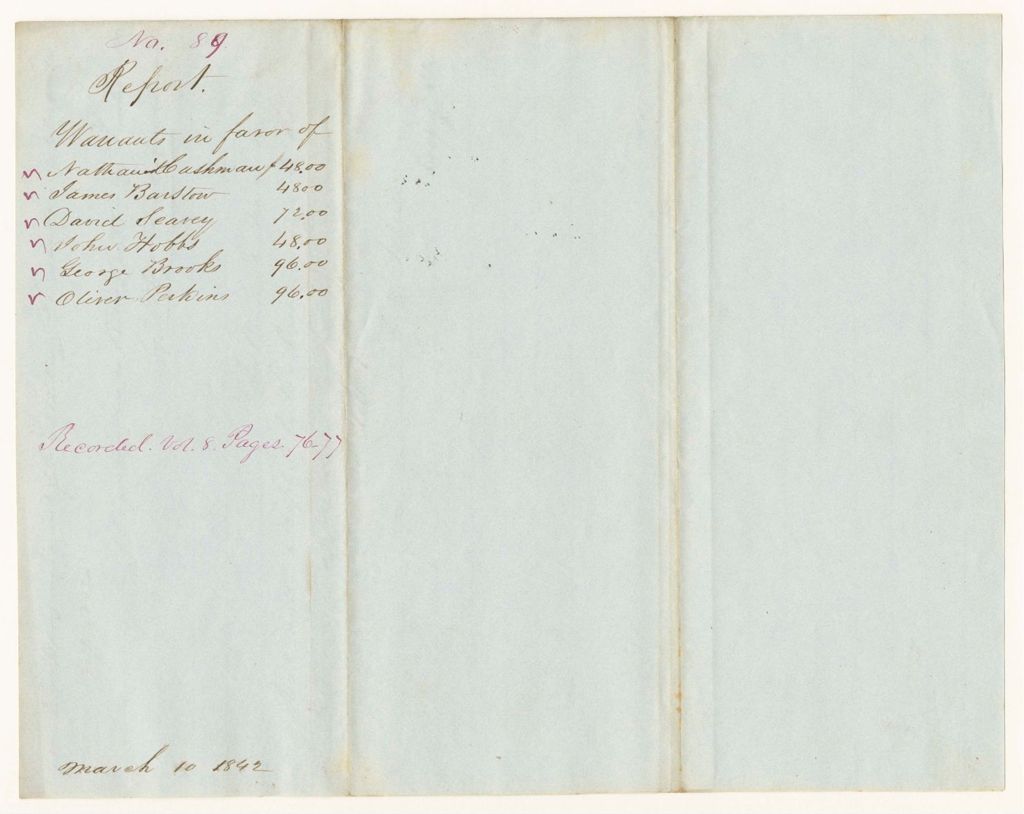 No. 89
Report.
Warrants in favor of
Nathaniel Cashman $48.00
James Barstow 4800
David Seavey 72.00
John Hobbs 48.00
George Brooks 96.00
Oliver Perkins 96.00
Recorded. Vol. 8. Pages. 76-77
March 10 1842